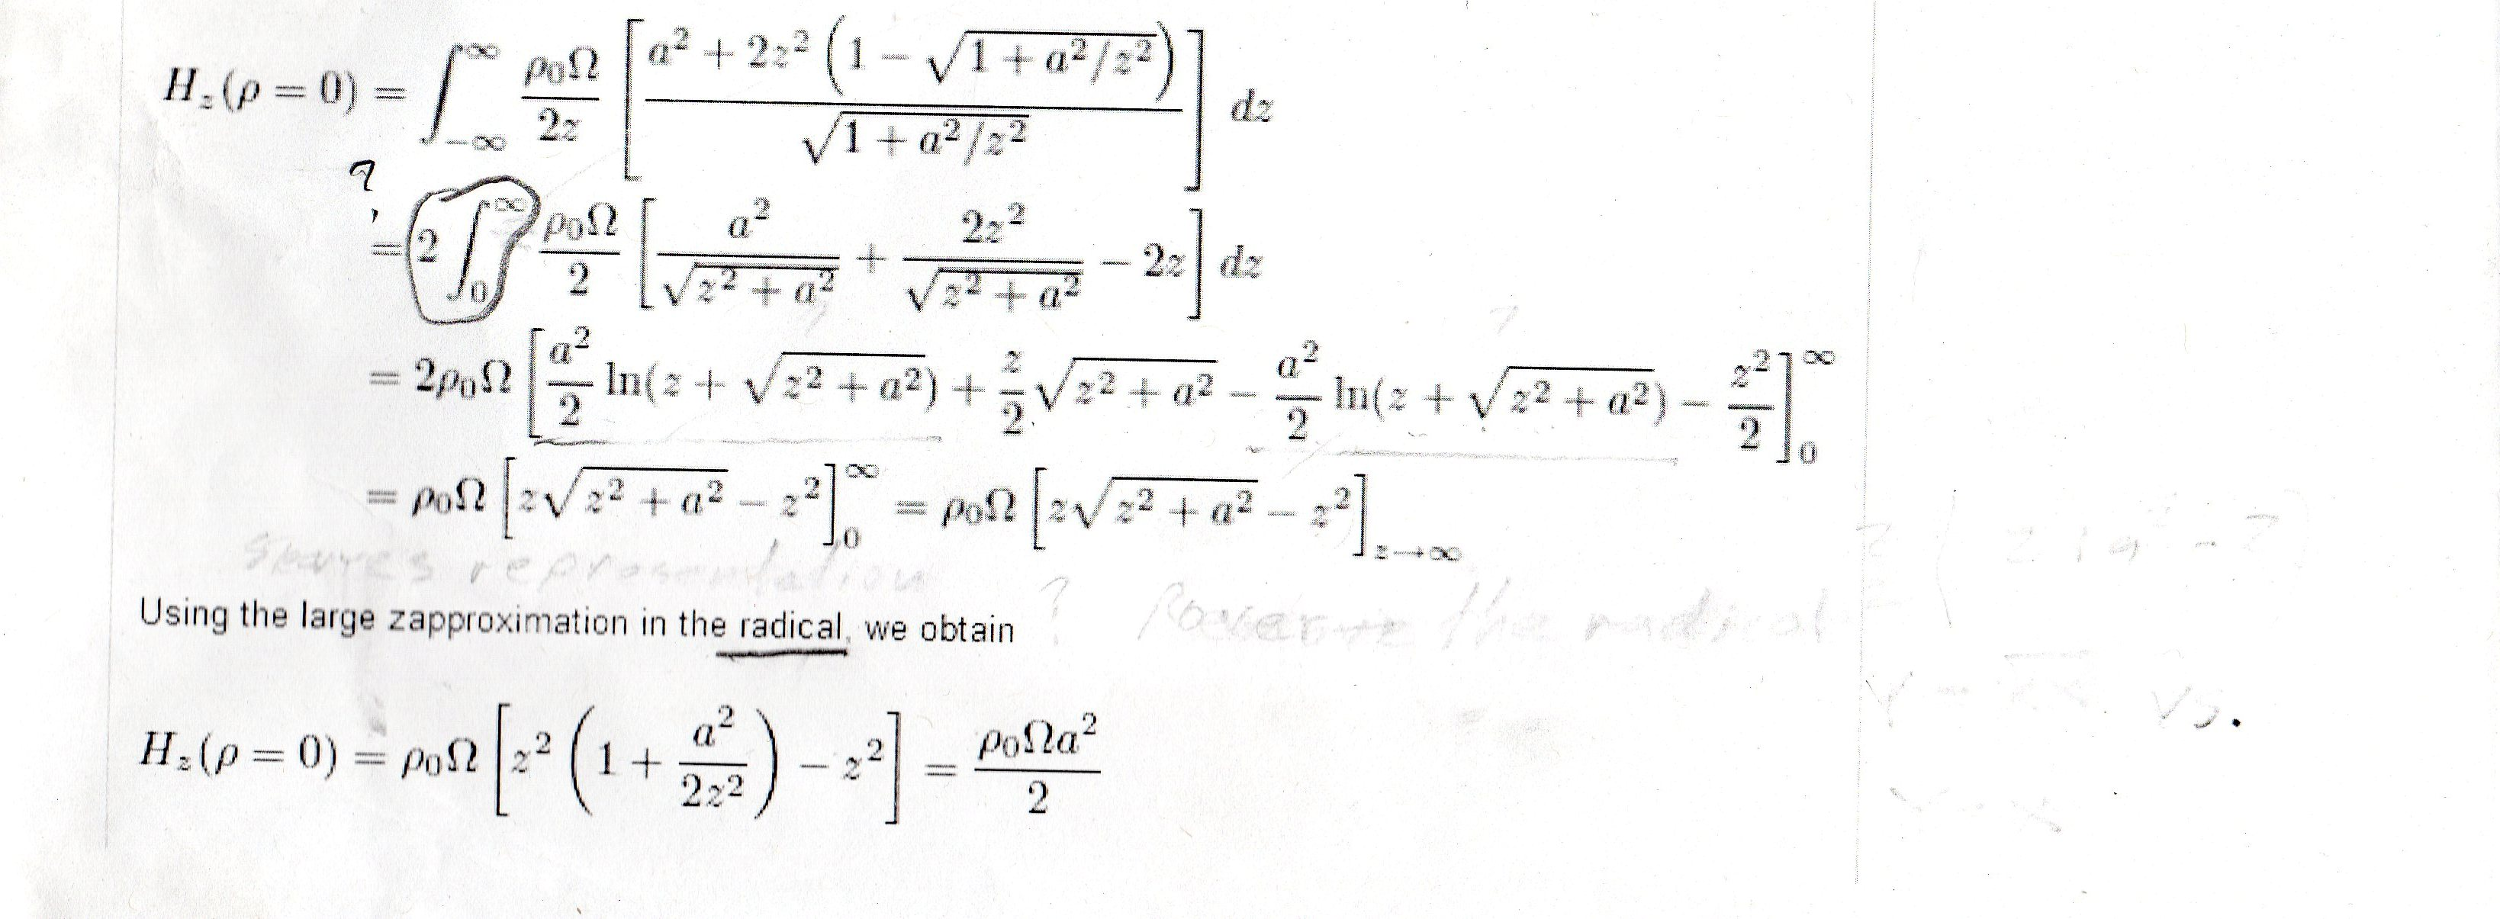 H_z(ρ = 0) = ∫_{-∞}^{∞} ρ₀Ω/2z [ (a² + 2z² (1 − √(1 + a²/z²))) / √(1 + a²/z²) ] dz
?
= 2 ∫_0^∞ ρ₀Ω/2 [ a²/√(z² + a²) + 2z²/√(z² + a²) − 2z ] dz
= 2ρ₀Ω [ a²/2 ln(z + √(z² + a²)) + z/2 √(z² + a²) − a²/2 ln(z + √(z² + a²)) − z²/2 ]_0^∞
= ρ₀Ω [ z√(z² + a²) − z² ]_0^∞ = ρ₀Ω [ z√(z² + a²) − z² ]_{z→∞}
representation
Using the large zapproximation in the radical, we obtain
? the radical
vs.
H_z(ρ = 0) = ρ₀Ω [ z² (1 + a²/2z²) − z² ] = ρ₀Ωa²/2